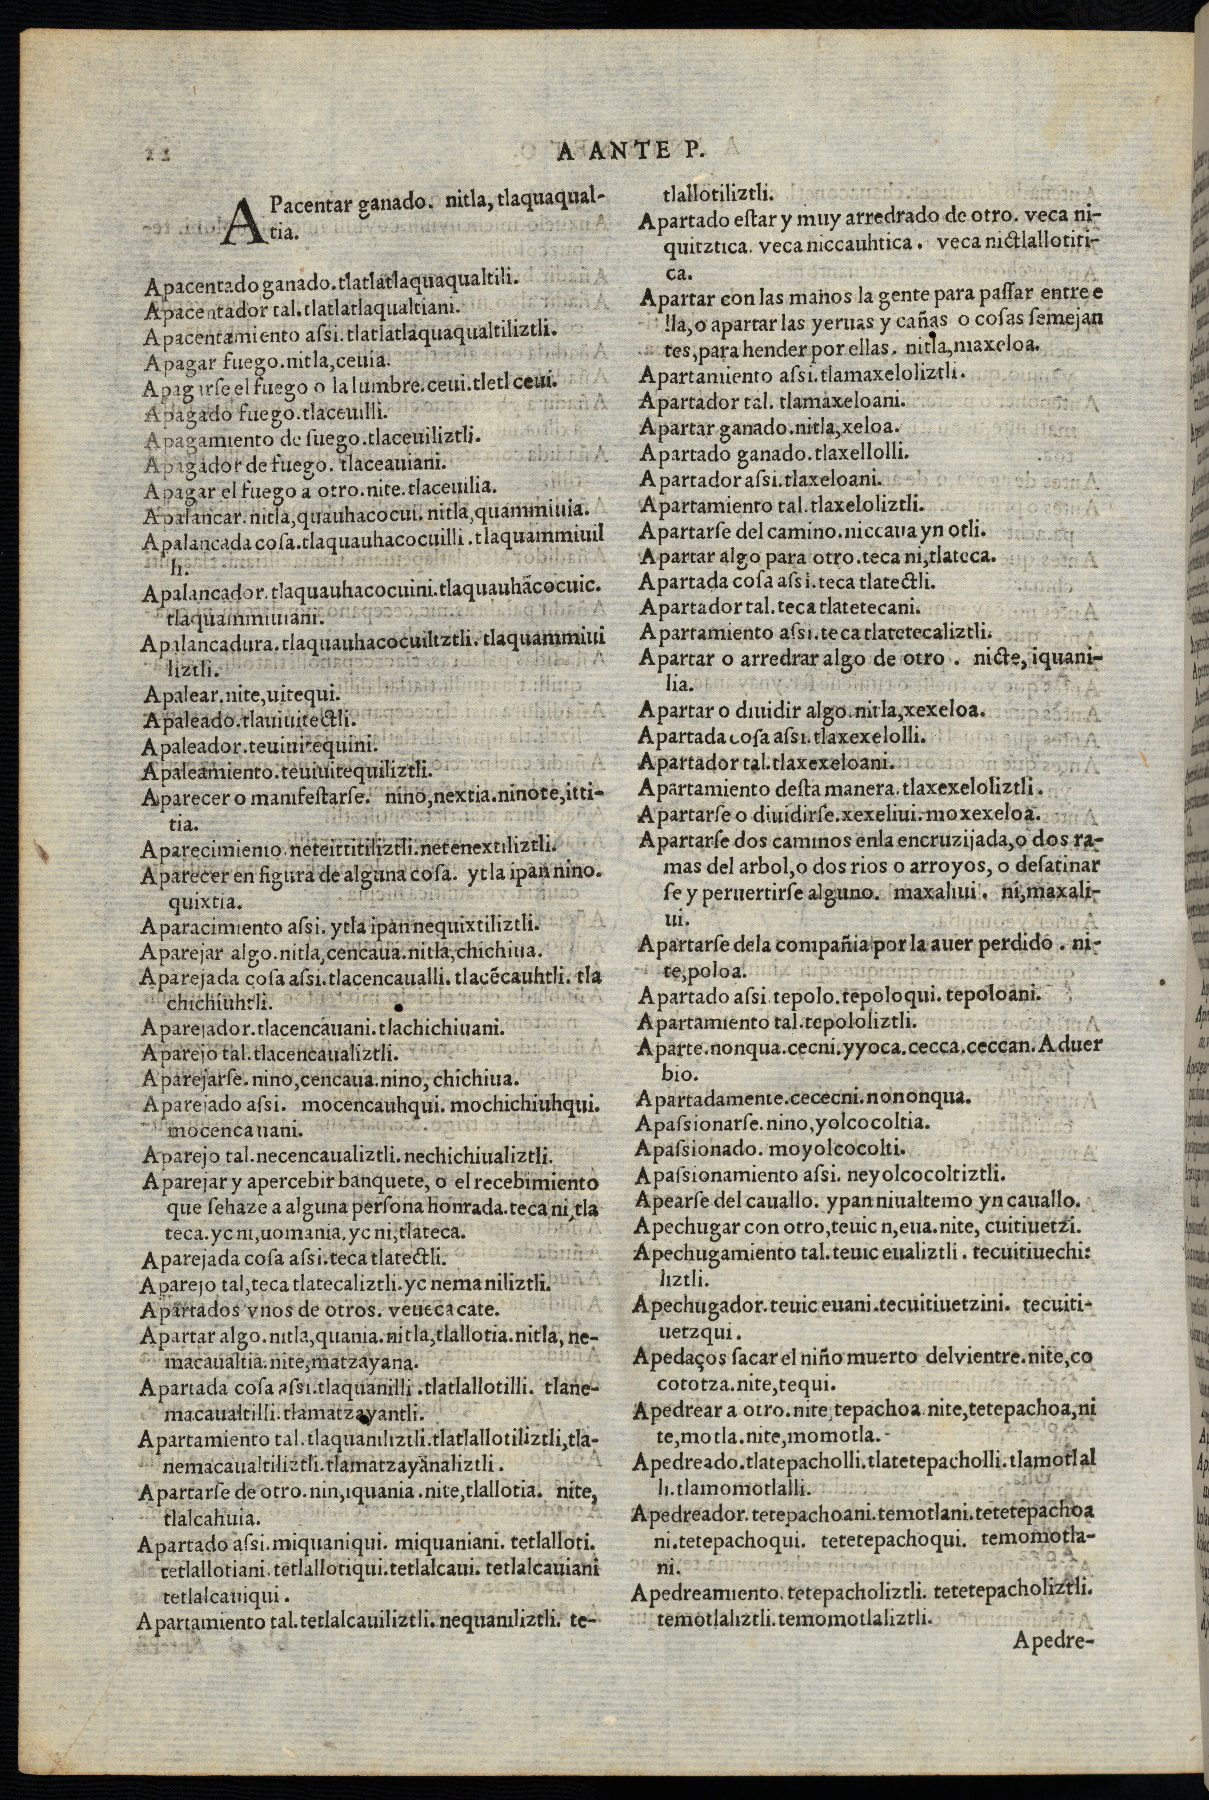 A ANTE P.
APacentar ganado. nitla, tlaquaqual-
tia.
Apacentado ganado. tlatlatlaquaqualtili.
Apacentador tal. tlatlatlaqualtiani.
Apacentamiento aſſi. tlatlatlaquaqualtiliztli.
Apagar fuego. nitla, ceuia.
Apagarſe el fuego o la lumbre. ceui. tletl ceui.
Apagado fuego. tlaceuilli.
Apagamiento de fuego. tlaceuiliztli.
Apagador de fuego. tlaceauiani.
Apagar el fuego a otro. nite. tlaceuilia.
Apalancar. nitla, quauhacocui. nitla, quammiuia.
Apalancada coſa. tlaquauhacocuilli. tlaquammiuil
li.
Apalancador. tlaquauhacocuini. tlaquauhãcocuic.
tlaquammiuiani.
Apalancadura. tlaquauhacocuiliztli. tlaquammiui
liztli.
Apalear. nite, uitequi.
Apaleado. tlauiuitectli.
Apaleador. teuiuitequini.
Apaleamiento. teuiuitequiliztli.
Aparecer o manifeſtarſe. nino, nextia. ninote, itti-
tia.
Aparecimiento. neteittitiliztli. netenextiliztli.
Aparecer en figura de alguna coſa. ytla ipan nino.
quixtia.
Aparacimiento aſſi. ytla ipan nequixtiliztli.
Aparejar algo. nitla, cencaua. nitla, chichiua.
Aparejada coſa aſſi. tlacencaualli. tlacẽcauhtli. tla
chichiuhtli.
Aparejador. tlacencauani. tlachichiuani.
Aparejo tal. tlacencaualiztli.
Aparejarſe. nino, cencaua. nino, chichiua.
Aparejado aſſi. mocencauhqui. mochichiuhqui.
mocencauani.
Aparejo tal. necencaualiztli. nechichiualiztli.
Aparejar y apercebir banquete, o el recebimiento
que ſehaze a alguna perſona honrada. teca ni, tla
teca. yc ni, uomania, yc ni, tlateca.
Aparejada coſa aſſi. teca tlatectli.
Aparejo tal, teca tlatecaliztli. yc nemaniliztli.
Apartados vnos de otros. veueca cate.
Apartar algo. nitla, quania. nitla, tlallotia. nitla, ne-
macaualtia. nite, matzayana.
Apartada coſa aſſi. tlaquanilli. tlatlallotilli. tlane-
macaualtilli. tlamatzayantli.
Apartamiento tal. tlaquaniliztli. tlatlallotiliztli, tla-
nemacaualtiliztli. tlamatzayanaliztli.
Apartarſe de otro. nin, iquania. nite, tlallotia. nite,
tlalcahuia.
Apartado aſſi. miquaniqui. miquaniani. tetlalloti.
tetlallotiani. tetlallotiqui. tetlalcaui. tetlalcauiani
tetlalcauiqui.
Apartamiento tal. tetlalcauiliztli. nequaniliztli. te-
tlallotiliztli.
Apartado eſtar y muy arredrado de otro. veca ni-
quitztica. veca niccauhtica. veca nictlallotiti-
ca.
Apartar con las manos la gente para paſſar entre e
lla, o apartar las yeruas y cañas o coſas ſemejan
tes, para hender por ellas. nitla, maxeloa.
Apartamiento aſſi. tlamaxeloliztli.
Apartador tal. tlamaxeloani.
Apartar ganado. nitla, xeloa.
Apartado ganado. tlaxellolli.
Apartador aſſi. tlaxeloani.
Apartamiento tal. tlaxeloliztli.
Apartarſe del camino. niccaua yn otli.
Apartar algo para otro. teca ni, tlateca.
Apartada coſa aſſi. teca tlatectli.
Apartador tal. teca tlatetecani.
Apartamiento aſſi. teca tlatetecaliztli.
Apartar o arredrar algo de otro. nicte, iquani-
lia.
Apartar o diuidir algo. nitla, xexeloa.
Apartada coſa aſſi. tlaxexelolli.
Apartador tal. tlaxexeloani.
Apartamiento deſta manera. tlaxexeloliztli.
Apartarſe o diuidirſe. xexeliui. moxexeloa.
Apartarſe dos caminos enla encruzijada, o dos ra-
mas del arbol, o dos rios o arroyos, o deſatinar
ſe y peruertirſe alguno. maxaliui. ni, maxali-
ui.
Apartarſe dela compañia por la auer perdido. ni-
te, poloa.
Apartado aſſi. tepolo. tepoloqui. tepoloani.
Apartamiento tal. tepololiztli.
Aparte. nonqua. cecni. yyoca. cecca. ceccan. Aduer
bio.
Apartadamente. cececni. nononqua.
Apaſſionarſe. nino, yolcocoltia.
Apaſſionado. moyolcocolti.
Apaſſionamiento aſſi. neyolcocoltiztli.
Apearſe del cauallo. ypan niualtemo yn cauallo.
Apechugar con otro, teuic n, eua. nite, cuitiuetzi.
Apechugamiento tal. teuic eualiztli. tecuitiuechi:
liztli.
Apechugador. teuic euani. tecuitiuetzini. tecuiti-
uetzqui.
Apedaços ſacar el niño muerto delvientre. nite, co
cototza. nite, tequi.
Apedrear a otro. nite, tepachoa. nite, tetepachoa, ni
te, motla. nite, momotla.
Apedreado. tlatepacholli. tlatetepacholli. tlamotlal
li. tlamomotlalli.
Apedreador. tetepachoani. temotlani. tetetepachoa
ni. tetepachoqui. tetetepachoqui. temomotla-
ni.
Apedreamiento. tetepacholiztli. tetetepacholiztli.
temotlaliztli. temomotlaliztli.
Apedre-